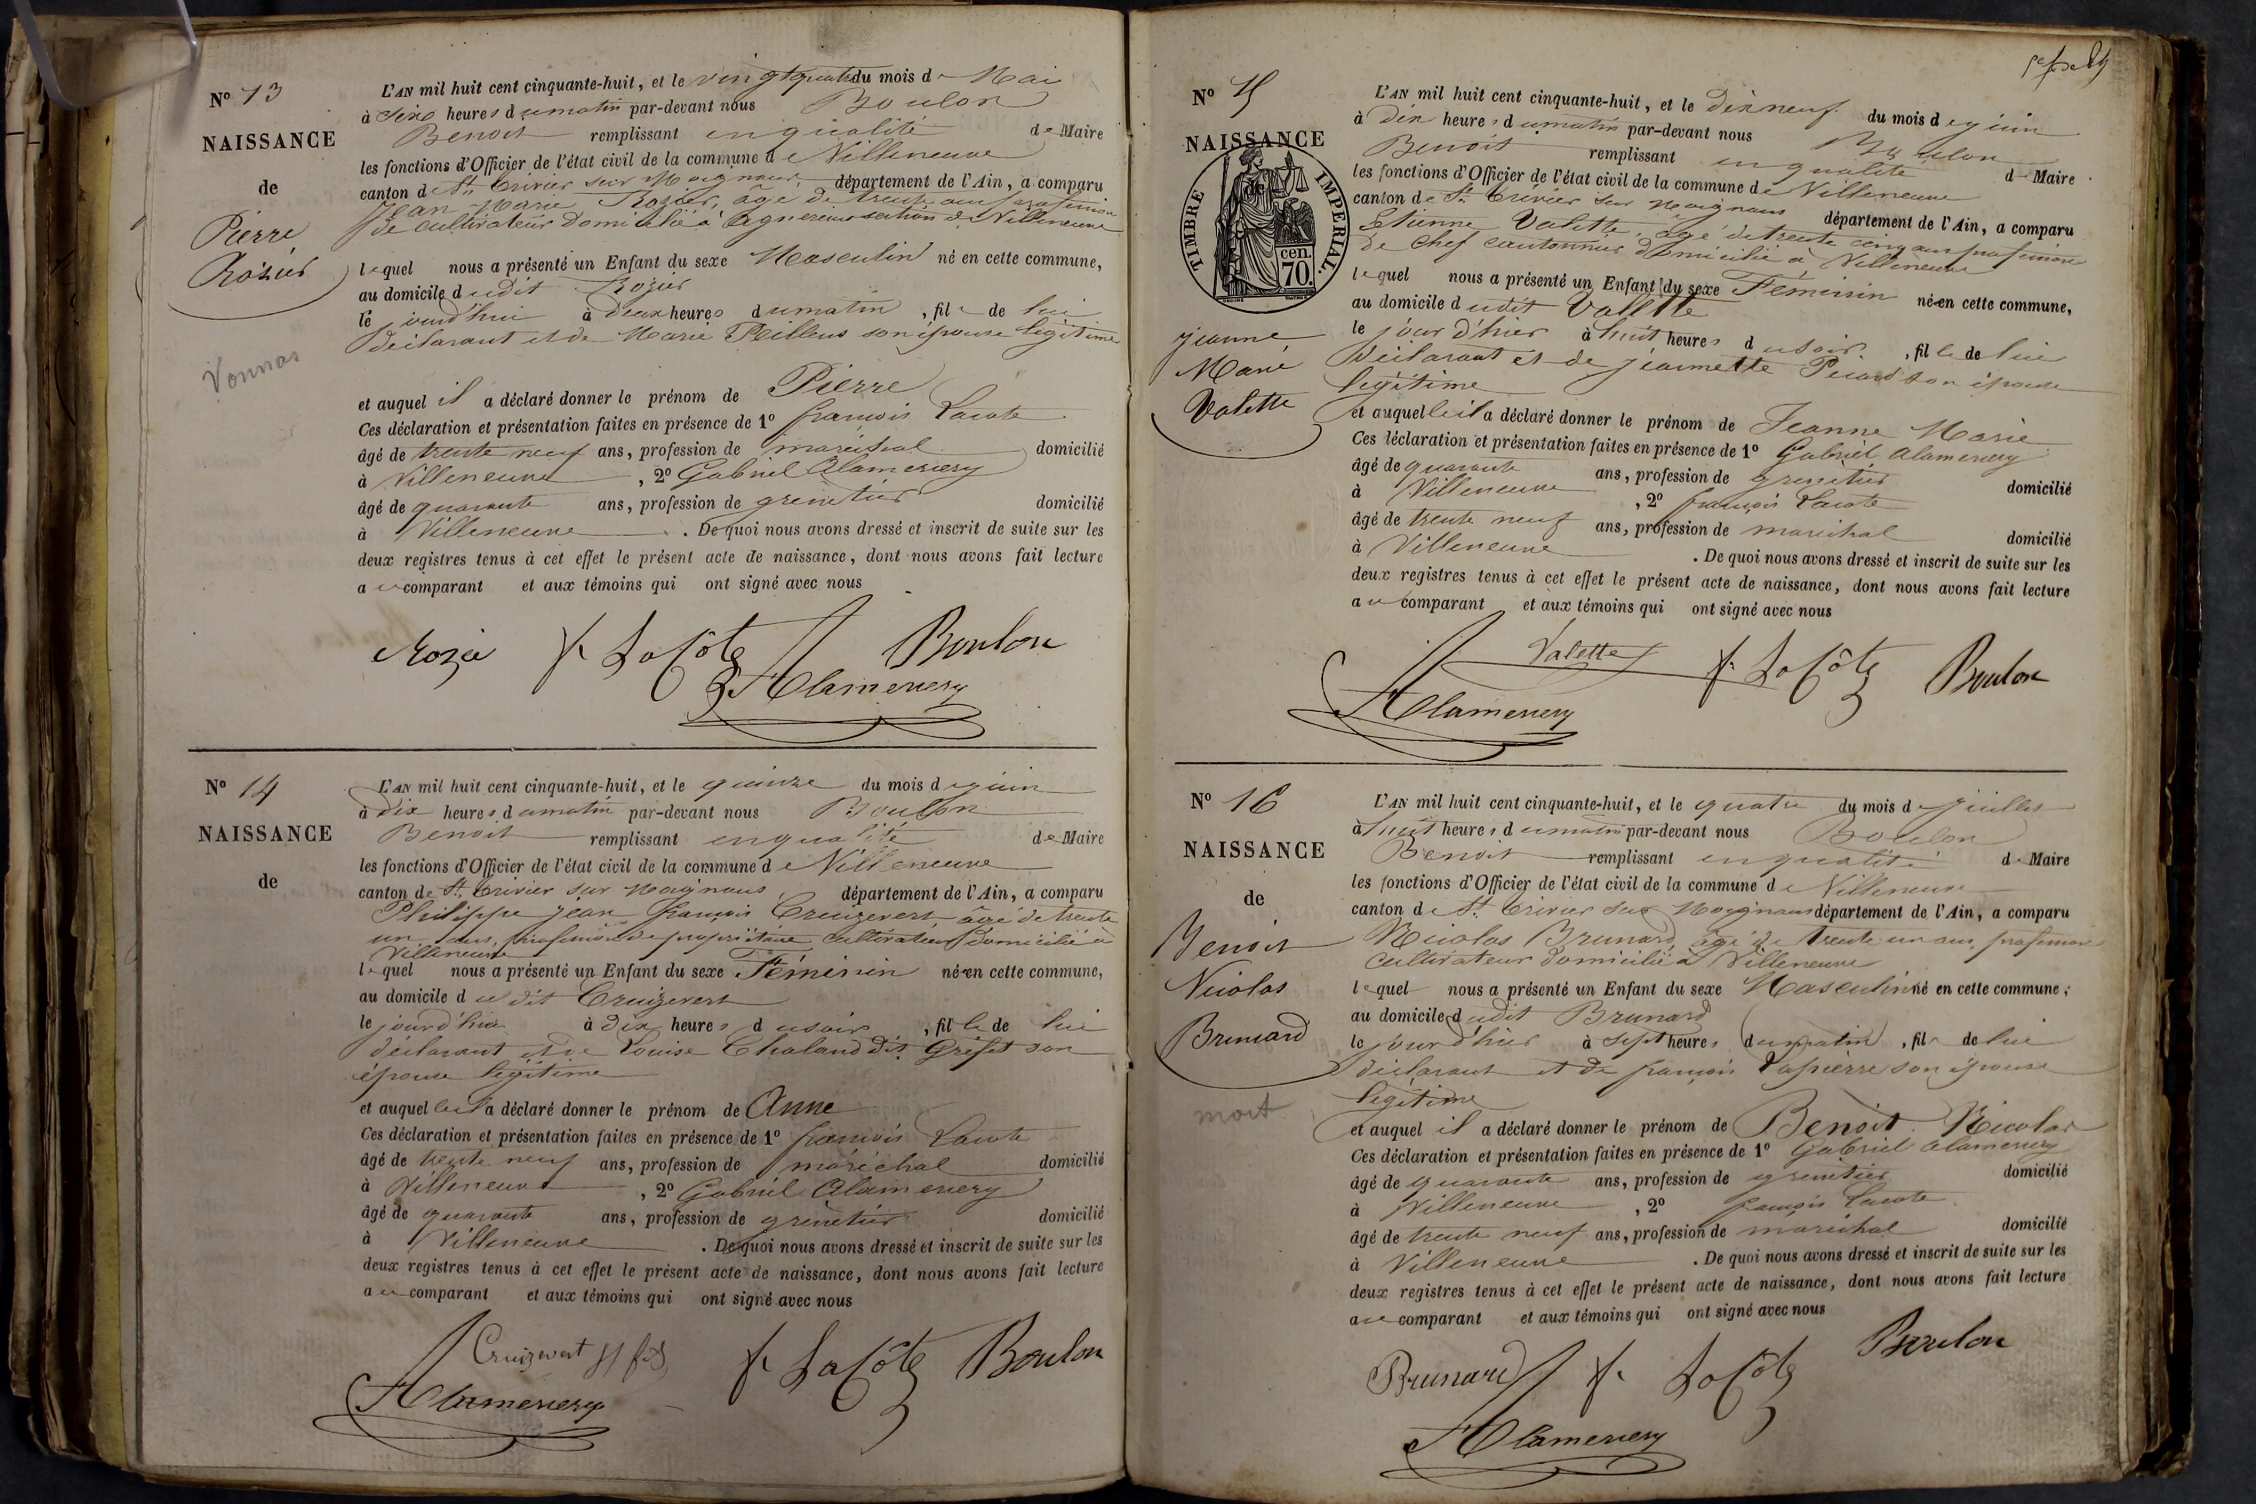 N° 13
NAISSANCE
de
Pierre
Rozier
Vonnas
L'AN mil huit cent cinquante-huit, et le vingt quatre du mois de Mai
à heures du matin par-devant nous Boulon
Benoit remplissant en qualité de Maire
les fonctions d'Officier de l'état civil de la commune de Villeneuve
canton de St. Trivier sur Moignans département de l'Ain, a comparu
Jean Marie Rozier, âgé de trente ans profession
de cultivateur domicilié à Agnereins section de Villeneuve
lequel nous a présenté un Enfant du sexe Masculin né en cette commune,
au domicile dudit Rozier
le jourd'hui à deux heures du matin, fils de lui
déclarant et de Marie son épouse légitime
et auquel il a déclaré donner le prénom de Pierre
Ces déclaration et présentation faites en présence de 1° françois Lacote
âgé de trente neuf ans, profession de maréchal domicilié
à Villeneuve, 2° Gabriel Alamercery
âgé de quarante ans, profession de grenetier domicilié
à Villeneuve. De quoi nous avons dressé et inscrit de suite sur les
deux registres tenus à cet effet le présent acte de naissance, dont nous avons fait lecture
au comparant et aux témoins qui ont signé avec nous
Rozie f. LaCôte Boulon
Alamercery
N° 14
NAISSANCE
de
L'AN mil huit cent cinquante-huit, et le quinze du mois de juin
à dix heures du matin par-devant nous Boulon
Benoit remplissant en qualité de Maire
les fonctions d'Officier de l'état civil de la commune de Villeneuve
canton de St. Trivier sur Moignans département de l'Ain, a comparu
Philippe jean françois Cruizevert âgé de trente
un ans, profession de propriétaire cultivateur domicilié à
Villeneuve
lequel nous a présenté un Enfant du sexe Féminin né en cette commune,
au domicile dudit Cruizevert
le jourd'hier à dix heures du soir, fille de lui
déclarant et de Louise Chaland dit Grifet son
épouse légitime
et auquel il a déclaré donner le prénom de Anne
Ces déclaration et présentation faites en présence de 1° françois Lacote
âgé de trente neuf ans, profession de maréchal domicilié
à Villeneuve, 2° Gabriel Alamercery
âgé de quarante ans, profession de grenetier domicilié
à Villeneuve. De quoi nous avons dressé et inscrit de suite sur les
deux registres tenus à cet effet le présent acte de naissance, dont nous avons fait lecture
au comparant et aux témoins qui ont signé avec nous
Cruizevert f. LaCôte Boulon
Alamercery
N° 15
NAISSANCE
de
TIMBRE IMPERIAL.
cen.
70.
jeanne
Marie
Valette
L'AN mil huit cent cinquante-huit, et le dix neuf du mois de juin
à dix heures du matin par-devant nous Boulon
Benoit remplissant en qualité de Maire
les fonctions d'Officier de l'état civil de la commune de Villeneuve
canton de St. Trivier sur Moignans département de l'Ain, a comparu
Etienne Valette, âgé de trente cinq ans profession
de chef cantonnier domicilié à Villeneuve
lequel nous a présenté un Enfant du sexe Féminin né en cette commune,
au domicile dudit Valette
le jour d'hier à huit heures du soir, fille de lui
déclarant et de jeannette Picard son épouse
légitime
et auquel il a déclaré donner le prénom de Jeanne Marie
Ces déclaration et présentation faites en présence de 1° Gabriel Alamercery
âgé de quarante ans, profession de grenetier domicilié
à Villeneuve, 2° françois Lacote
âgé de trente neuf ans, profession de maréchal domicilié
à Villeneuve. De quoi nous avons dressé et inscrit de suite sur les
deux registres tenus à cet effet le présent acte de naissance, dont nous avons fait lecture
au comparant et aux témoins qui ont signé avec nous
Valette f. LaCôte Boulon
Alamercery
N° 16
NAISSANCE
de
Benoit
Nicolas
Brunard
mort
L'AN mil huit cent cinquante-huit, et le quatre du mois de juillet
à huit heures du matin par-devant nous Boulon
Benoit remplissant en qualité de Maire
les fonctions d'Officier de l'état civil de la commune de Villeneuve
canton de St. Trivier sur Moignans département de l'Ain, a comparu
Nicolas Brunard, âgé de trente un ans, profession
cultivateur domicilié à Villeneuve
lequel nous a présenté un Enfant du sexe Masculin né en cette commune;
au domicile dudit Brunard
le jour d'hier à sept heures du matin, fils de lui
déclarant et de françois Lapierre son épouse
légitime
et auquel il a déclaré donner le prénom de Benoit Nicolas
Ces déclaration et présentation faites en présence de 1° Gabriel Alamercery
âgé de quarante ans, profession de grenetier domicilié
à Villeneuve, 2° françois Lacote
âgé de trente neuf ans, profession de maréchal domicilié
à Villeneuve. De quoi nous avons dressé et inscrit de suite sur les
deux registres tenus à cet effet le présent acte de naissance, dont nous avons fait lecture
au comparant et aux témoins qui ont signé avec nous
Brunard f. LaCôte Boulon
Alamercery